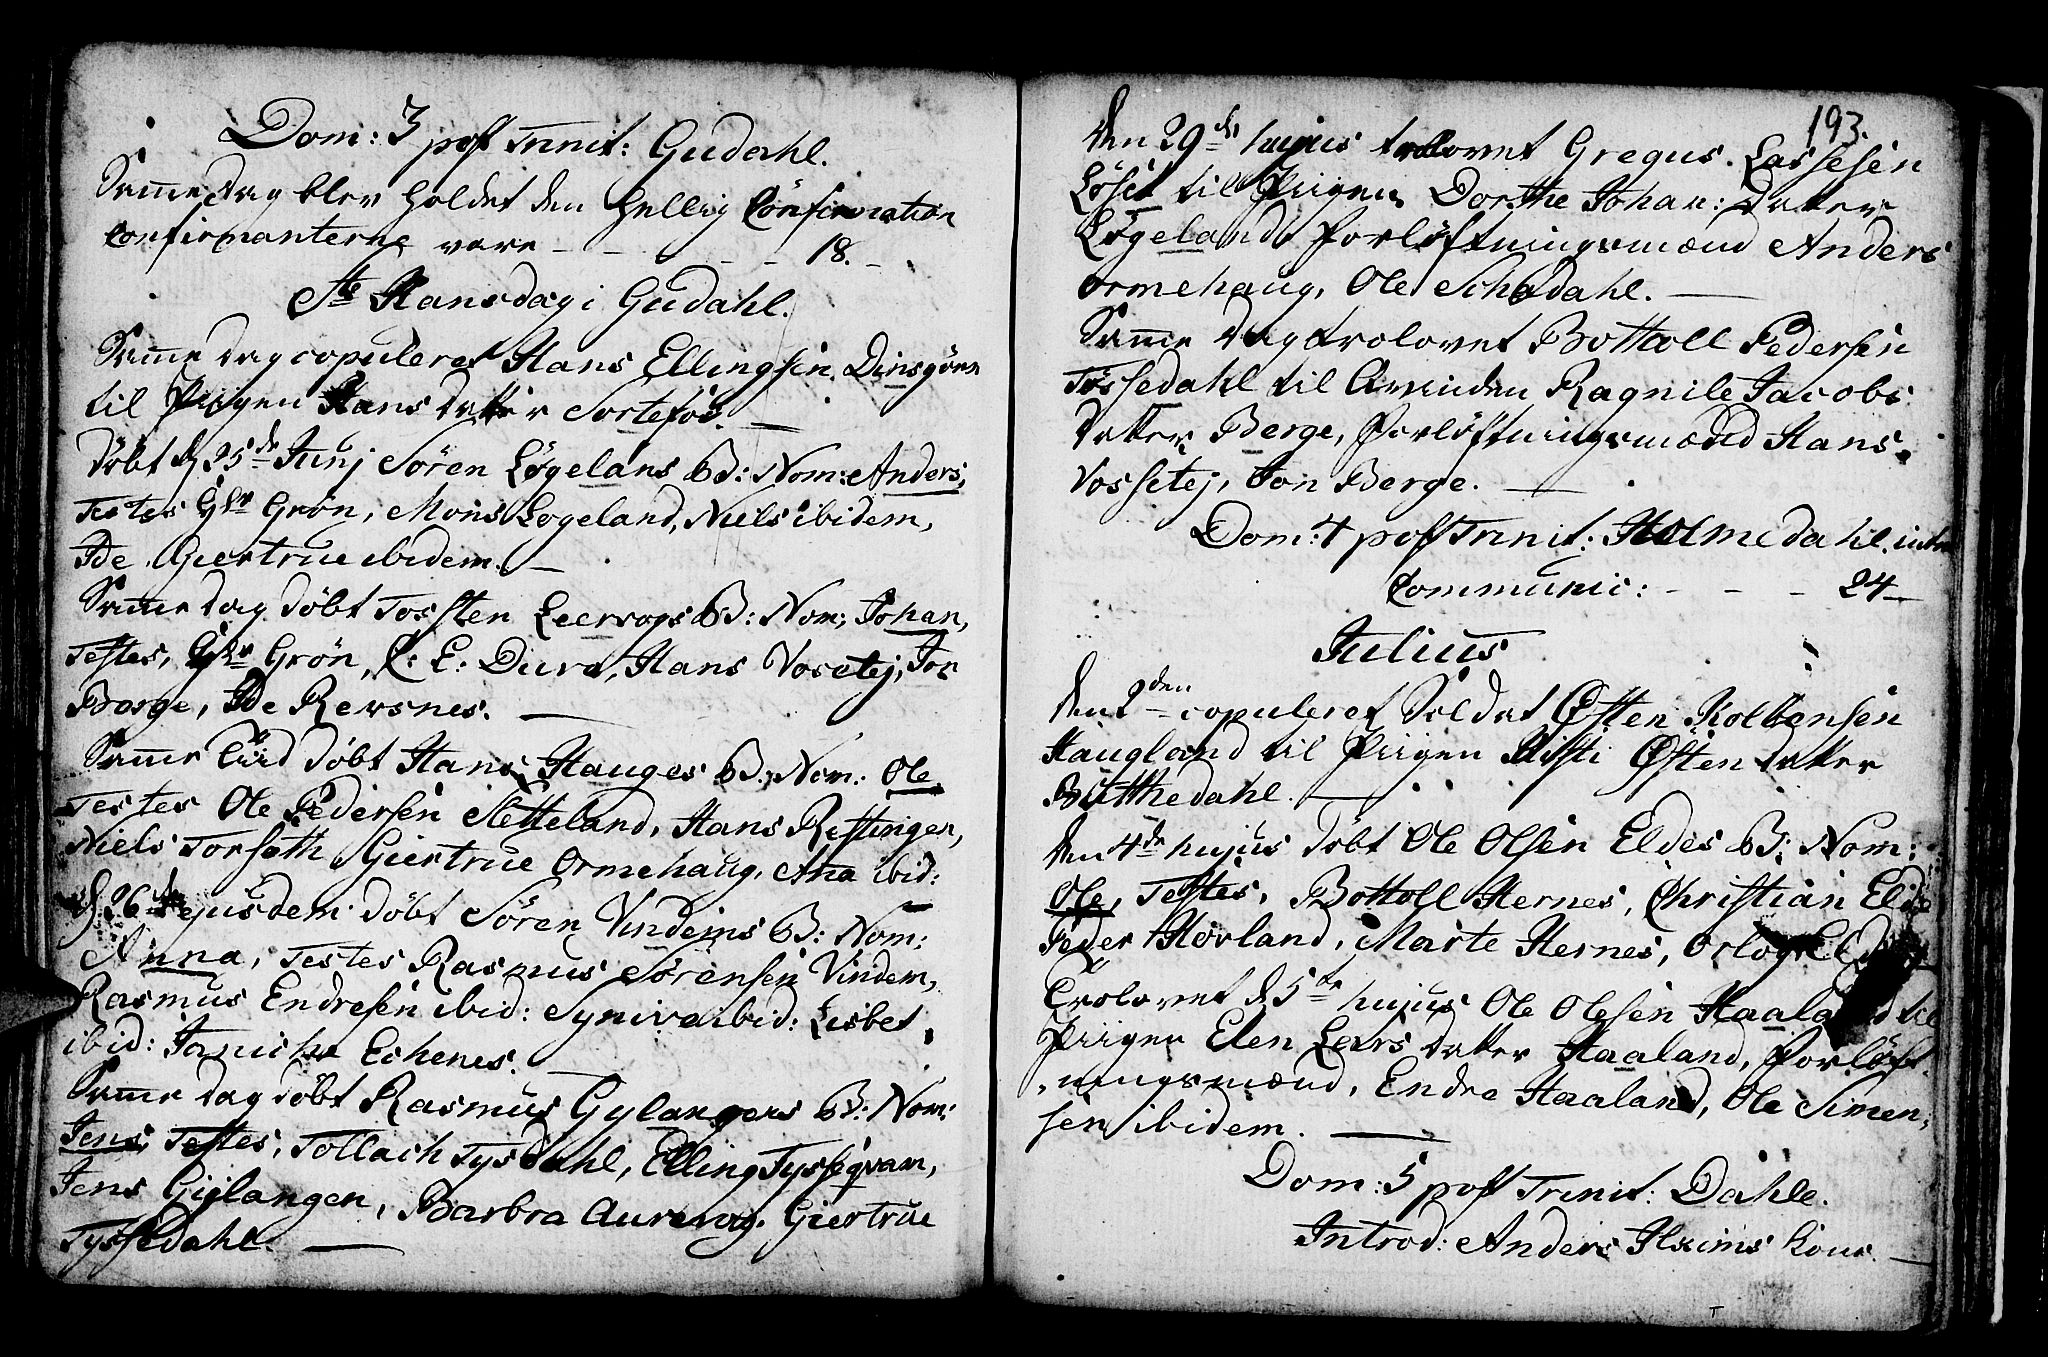 Dom: 3 post Trinit: Gudahl.
Samme dag blev holdet den hellig Confirmation
Confirmanterne vare - - - - - 18. -
Ste Hansdag i Gudahl.
Samme dag copuleret Hans Ellingsen Dinsgörn
til Piigen Hans datter Sortefos.
Döbt d 25de Junj Sören Løgelans B: Nom: Anders,
Testes Grön, Mons Løgeland, Niels ibidem,
Ide Giertrue ibidem. -
Samme dag döbt Tossten Leervogs B: Nom: Johan,
Testes, Grön, C: E: Dura, Hans Vosetej, Jon
Berge, Ide Rersnes.
Samme Tiid döbt Hans Hauges B: Nom: Ole
Testes Ole Pedersen Sletteland, Hans Restinger,
Niels Torseth Giertrue Ormehaug, Ana ibid:
d. 26de ejusdem döbt Sören Vindeims B: Nom:
Anna, Testes Rasmus Sørensen Vindem,
Rasmus Endresen ibid: Syniva ibid: Lisbet
ibid: Janicke Echenes.
Samme dag döbt Rasmus Gylangers B: Nom:
Jens, Testes, Tollach Tysdahl, Elling Tysseqvam,
Jens Gijlangen, Barbra Aurevog, Giertrue
Tyssedahl.
193.
Den 29de hujus trolovet Gregus. Lassesen
Løset til Piigen Dorthe Johan: datter
Løgeland, Forløftningsmænd Anders
Ormehaug, Ole Schodahl.
Samme dag trolovet Bottoll Pedersen
Tossedahl til Qvinden Ragnile Jacobs
datter Berge, Forløftningsmænd Hans
Vossetej, Jon Berge.
Dom: 4 post Trinit: Holmedahl.
Communic: - - - 24 -
Julius
Den 2den copuleret Soldat Østen Kolbensen
Haugland til Piigen Kisti Østen datter
Butthedahl.
Den 4de hujus döbt Ole Olsen Eldes B: Nom:
Ole, Testes, Bottoll Hernes, Christian Elde
Peder Hovland, Marte Hernes,
Trolovet d. 5te hujus Ole Olesen Haaland til
Piigen Elen Lars datter Haaland, Forløft-
ningsmænd, Endre Haaland, Ole Simen-
sen ibidem.
Dom: 5 post Trinit: Dahle.
Introd: Anders Hxims kone